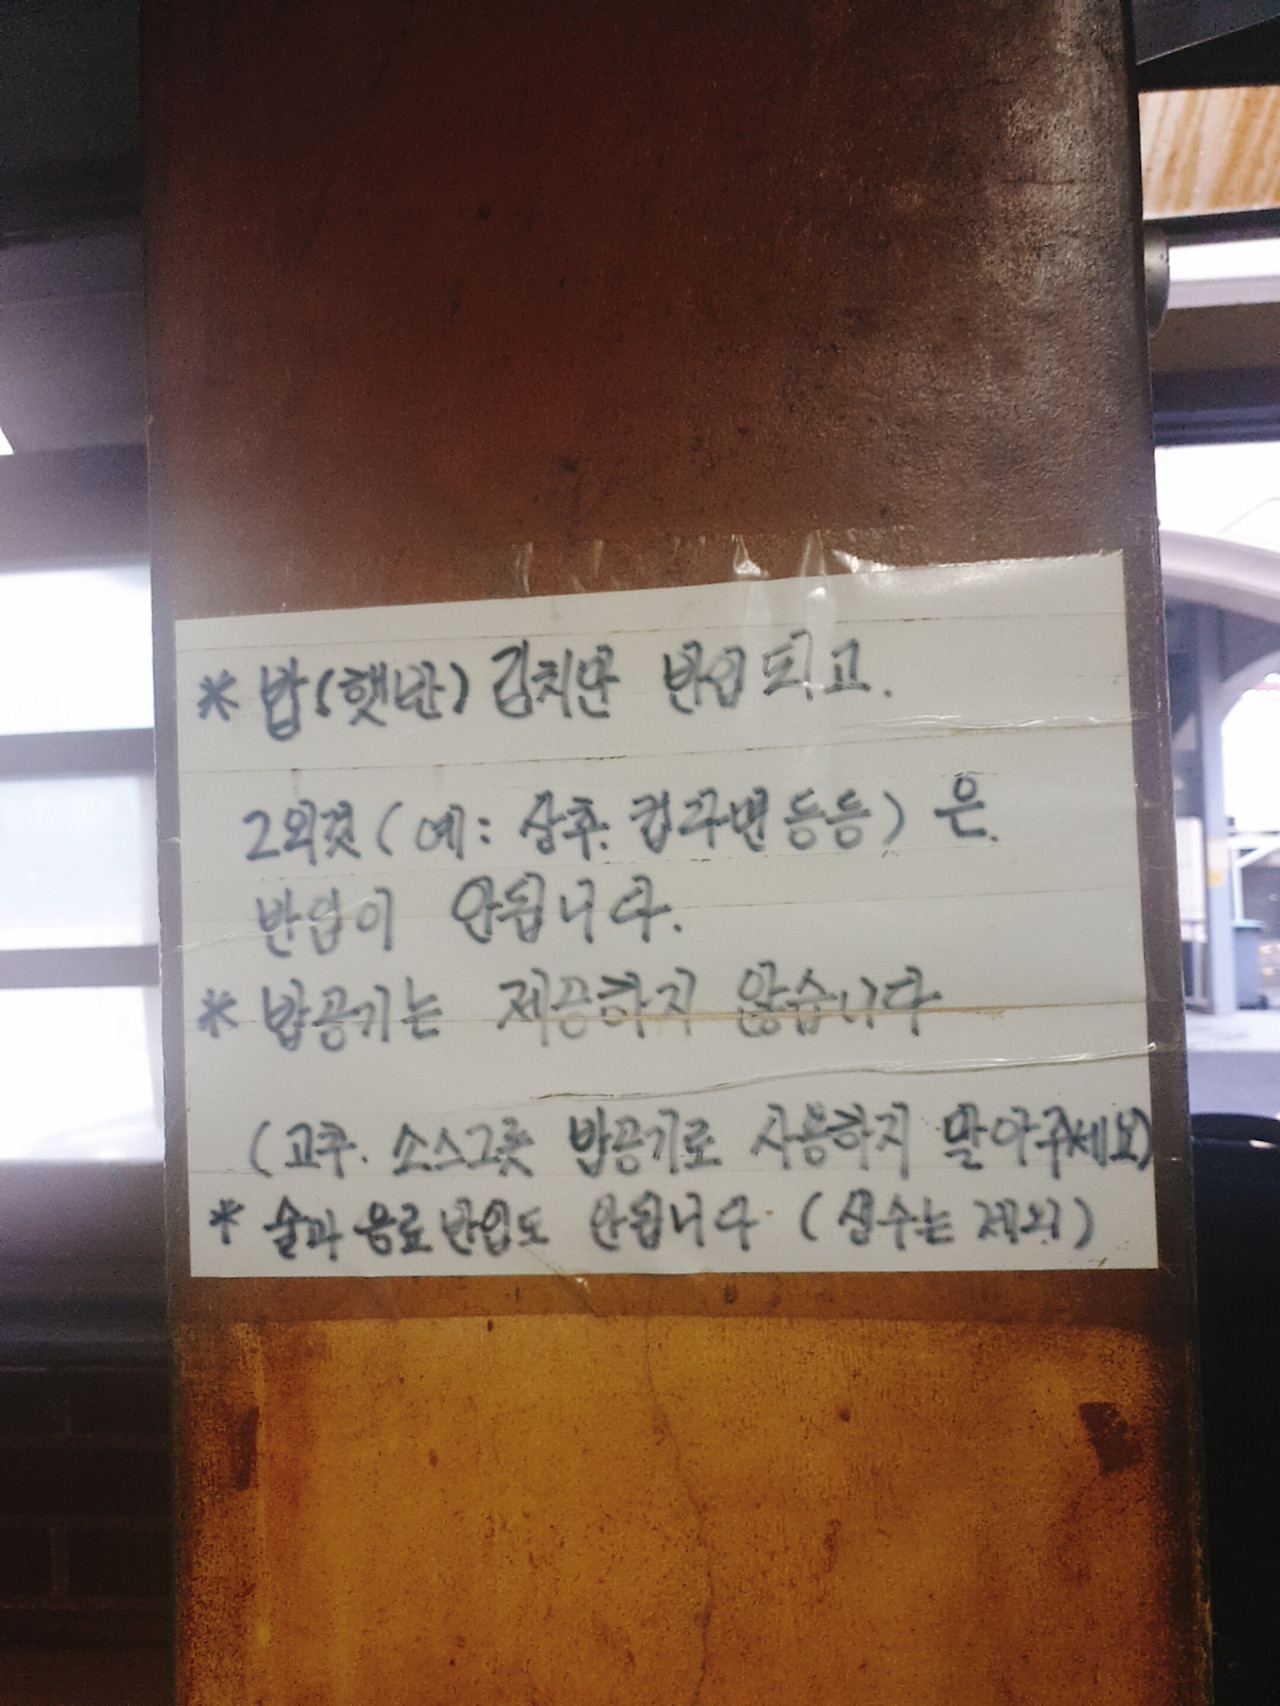 * 밥(햇반) 김치만 반입되고.
그외것 (예: 상추. 컵라면 등등) 은.
반입이 안됩니다.
* 밥공기는 제공하지 않습니다
(고추. 소스그릇 밥공기로 사용하지 말아주세요)
* 술과 음료 반입도 안됩니다 (생수는 제외)